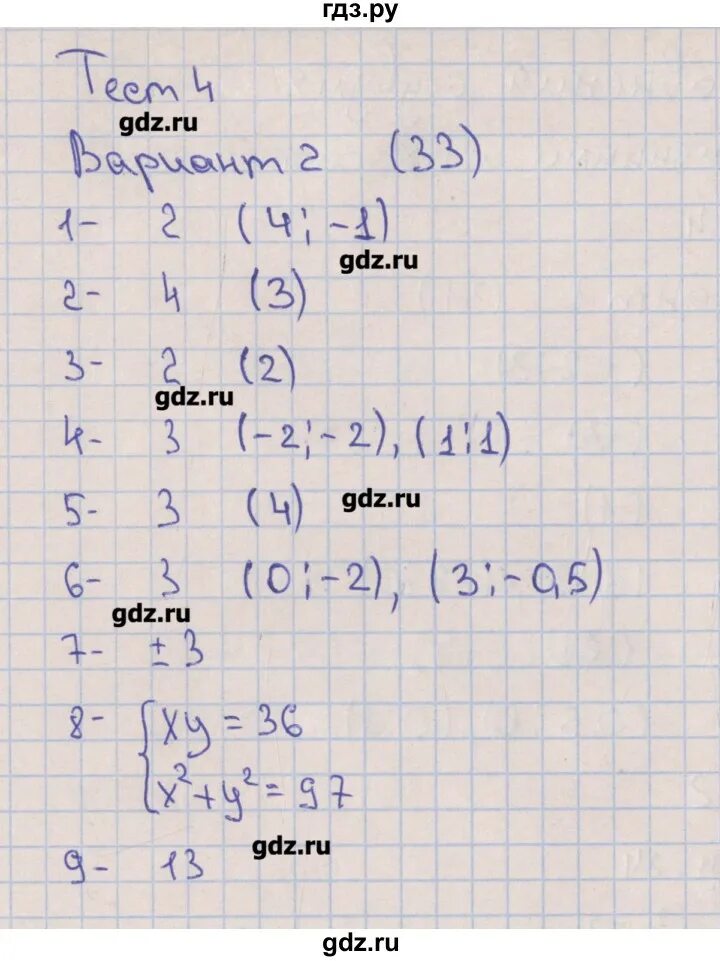 гдз.ру
Тест 4
gdz.ru
Вариант 2 (33)
1- 2 (4; -1)
gdz.ru
2- 4 (3)
3- 2 (2)
gdz.ru
4- 3 (-2; -2), (1; 1)
5- 3 (4)
gdz.ru
6- 3 (0; -2), (3; -0,5)
gdz.ru
7- ± 3
8- { xy = 36
x² + y² = 97
gdz.ru
9- 13
gdz.ru